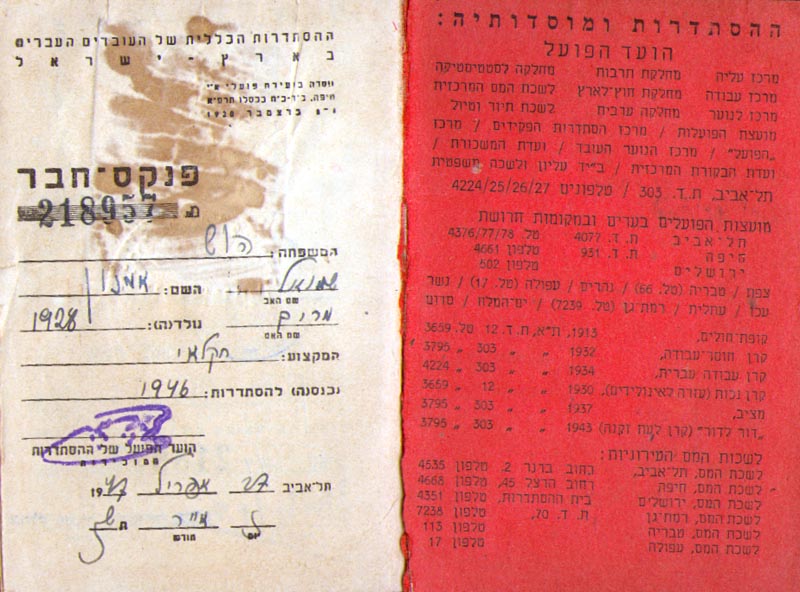 ההסתדרות הכללית של העובדים העברים
בארץ-ישראל
נוסדה בועידת פועלי א״י
חיפה, כ״ד-כ״ח בכסלו תרפ״א
5-9 בדצמבר 1920
פנקס-חבר
מ 218957
המשפחה: הוש
השם: אמנון שמואל
שם האב
נולד(ה): 1928 מרים
שם האם
המקצוע: חקלאי
נכנס(ה) להסתדרות: 1946
הועד הפועל של ההסתדרות
תל-אביב 27 אפריל 1947
ז אייר תש
יום חודש
ההסתדרות ומוסדותיה:
הועד הפועל
מרכז עליה מחלקת תרבות מחלקה לסטטיסטיקה
מרכז עבודה מחלקת חוץ-לארץ לשכת המס המרכזית
מרכז לנוער מחלקה ערבית לשכת תיור וטיול
מועצת הפועלות / מרכז הסתדרות הפקידים / מרכז
„הפועל״ / מרכז הנוער העובד / ועדת המשכורת /
ועדת הבקורת המרכזית / בי״ד עליון ולשכה משפטית
תל-אביב, ת.ד. 303 / טלפונים 4224/25/26/27
מועצות הפועלים בערים ובמקומות חרושת
תל-אביב ת. ד. 4077 טל. 4376/77/78
חיפה ת. ד. 931 טלפון 4661
ירושלים טלפון 502
צפת / טבריה (טל. 66) / נהריה / עפולה (טל. 17) / נשר
עכו / עתלית / רמת-גן (טל. 7239) / ים-המלח / סדום
קופת-חולים, 1913, ת״א, ת.ד. 12 טל. 3659
קרן חוסר-עבודה, 1932 „ „ 303 „ 3795
קרן עבודה עברית, 1934 „ „ 303 „ 4224
קרן נכות (עזרה לאינולידים), 1930 „ „ 12 „ 3659
מציב, 1937 „ „ 303 „ 3795
„דור לדור״ (קרן לעת זקנה) 1943 „ „ 303 „ 3795
לשכות המס העירוניות:
לשכת המס, תל-אביב, רחוב ברנר 2, טלפון 4535
לשכת המס, חיפה רחוב הרצל 45, טלפון 4668
לשכת המס, ירושלים בית ההסתדרות, טלפון 4351
לשכת המס, רמת-גן ת. ד. 70, טלפון 7238
לשכת המס, טבריה טלפון 113
לשכת המס, עפולה טלפון 17